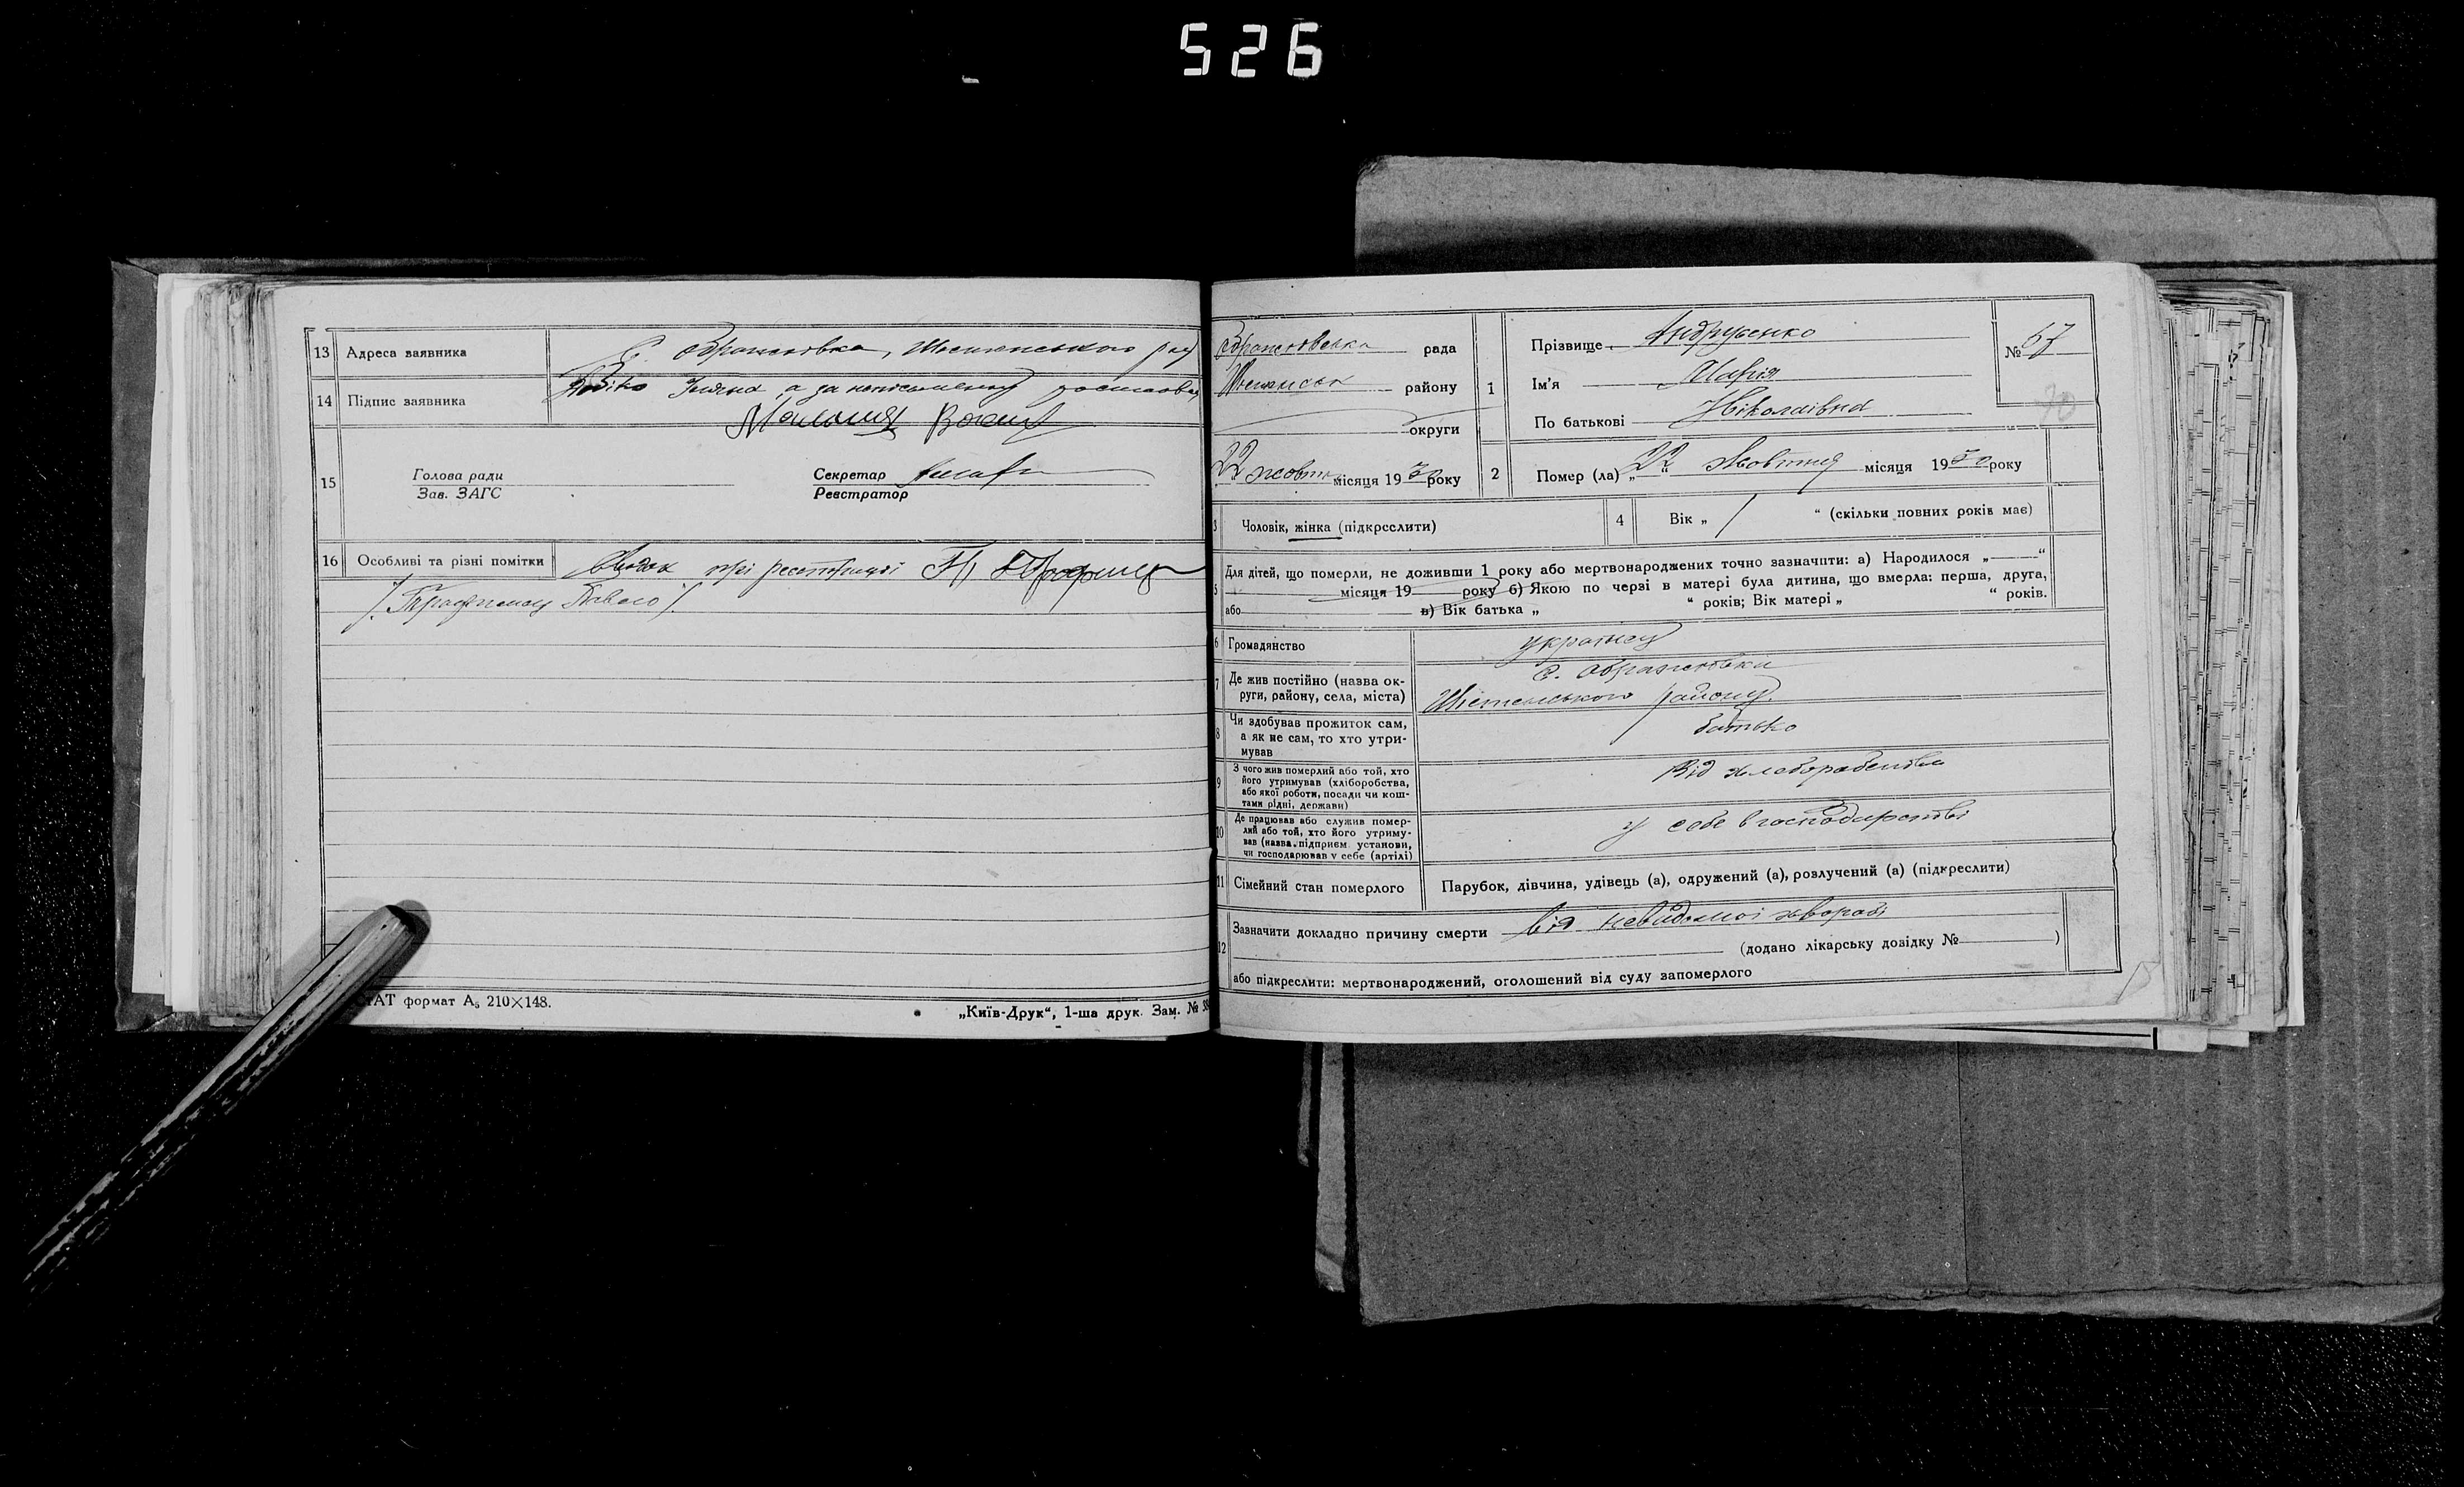 526
13 Адреса заявника С. Ображеївка,
14 Підпис заявника
15 Голова ради Секретар
Зав. ЗАГС Реєстратор
16 Особливі та різні помітки при реєстрації
Павело
СТАТ формат А₅ 210×148.
„Київ-Друк“, 1-ша друк. Зам. №
рада
району
округи
22 жовтн місяця 19 30 року
1 Прізвище Андрусенко
Ім’я Марія
По батькові Ніколаівна
№ 67
2 Помер (ла) „ 22 “ Жовтня місяця 19 30 року
3 Чоловік, жінка (підкреслити)
4 Вік „ “ (скільки повних років має)
5 Для дітей, що померли, не доживши 1 року або мертвонароджених точно зазначити: а) Народилося „ “
місяця 19 року б) Якою по черзі в матері була дитина, що вмерла: перша, друга,
або в) Вік батька „ “ років; Вік матері „ “ років.
6 Громадянство украінец
7 Де жив постійно (назва ок-
руги, району, села, міста)
с. Ображеївка
району
8 Чи здобував прожиток сам,
а як не сам, то хто утри-
мував
батько
9 З чого жив померлий або той, хто
його утримував (хліборобства,
або якої роботи, посади чи кош-
тами рідні, держави)
Від
10 Де працював або служив помер-
лий або той, хто його утриму-
вав (назва підприєм. установи,
чи господарював у себе (артілі)
у себе в господарстві
11 Сімейний стан померлого Парубок, дівчина, удівець (а), одружений (а), розлучений (а) (підкреслити)
12 Зазначити докладно причину смерти від невидомоі хвороби
(додано лікарську довідку № )
або підкреслити: мертвонароджений, оголошений від суду запомерлого